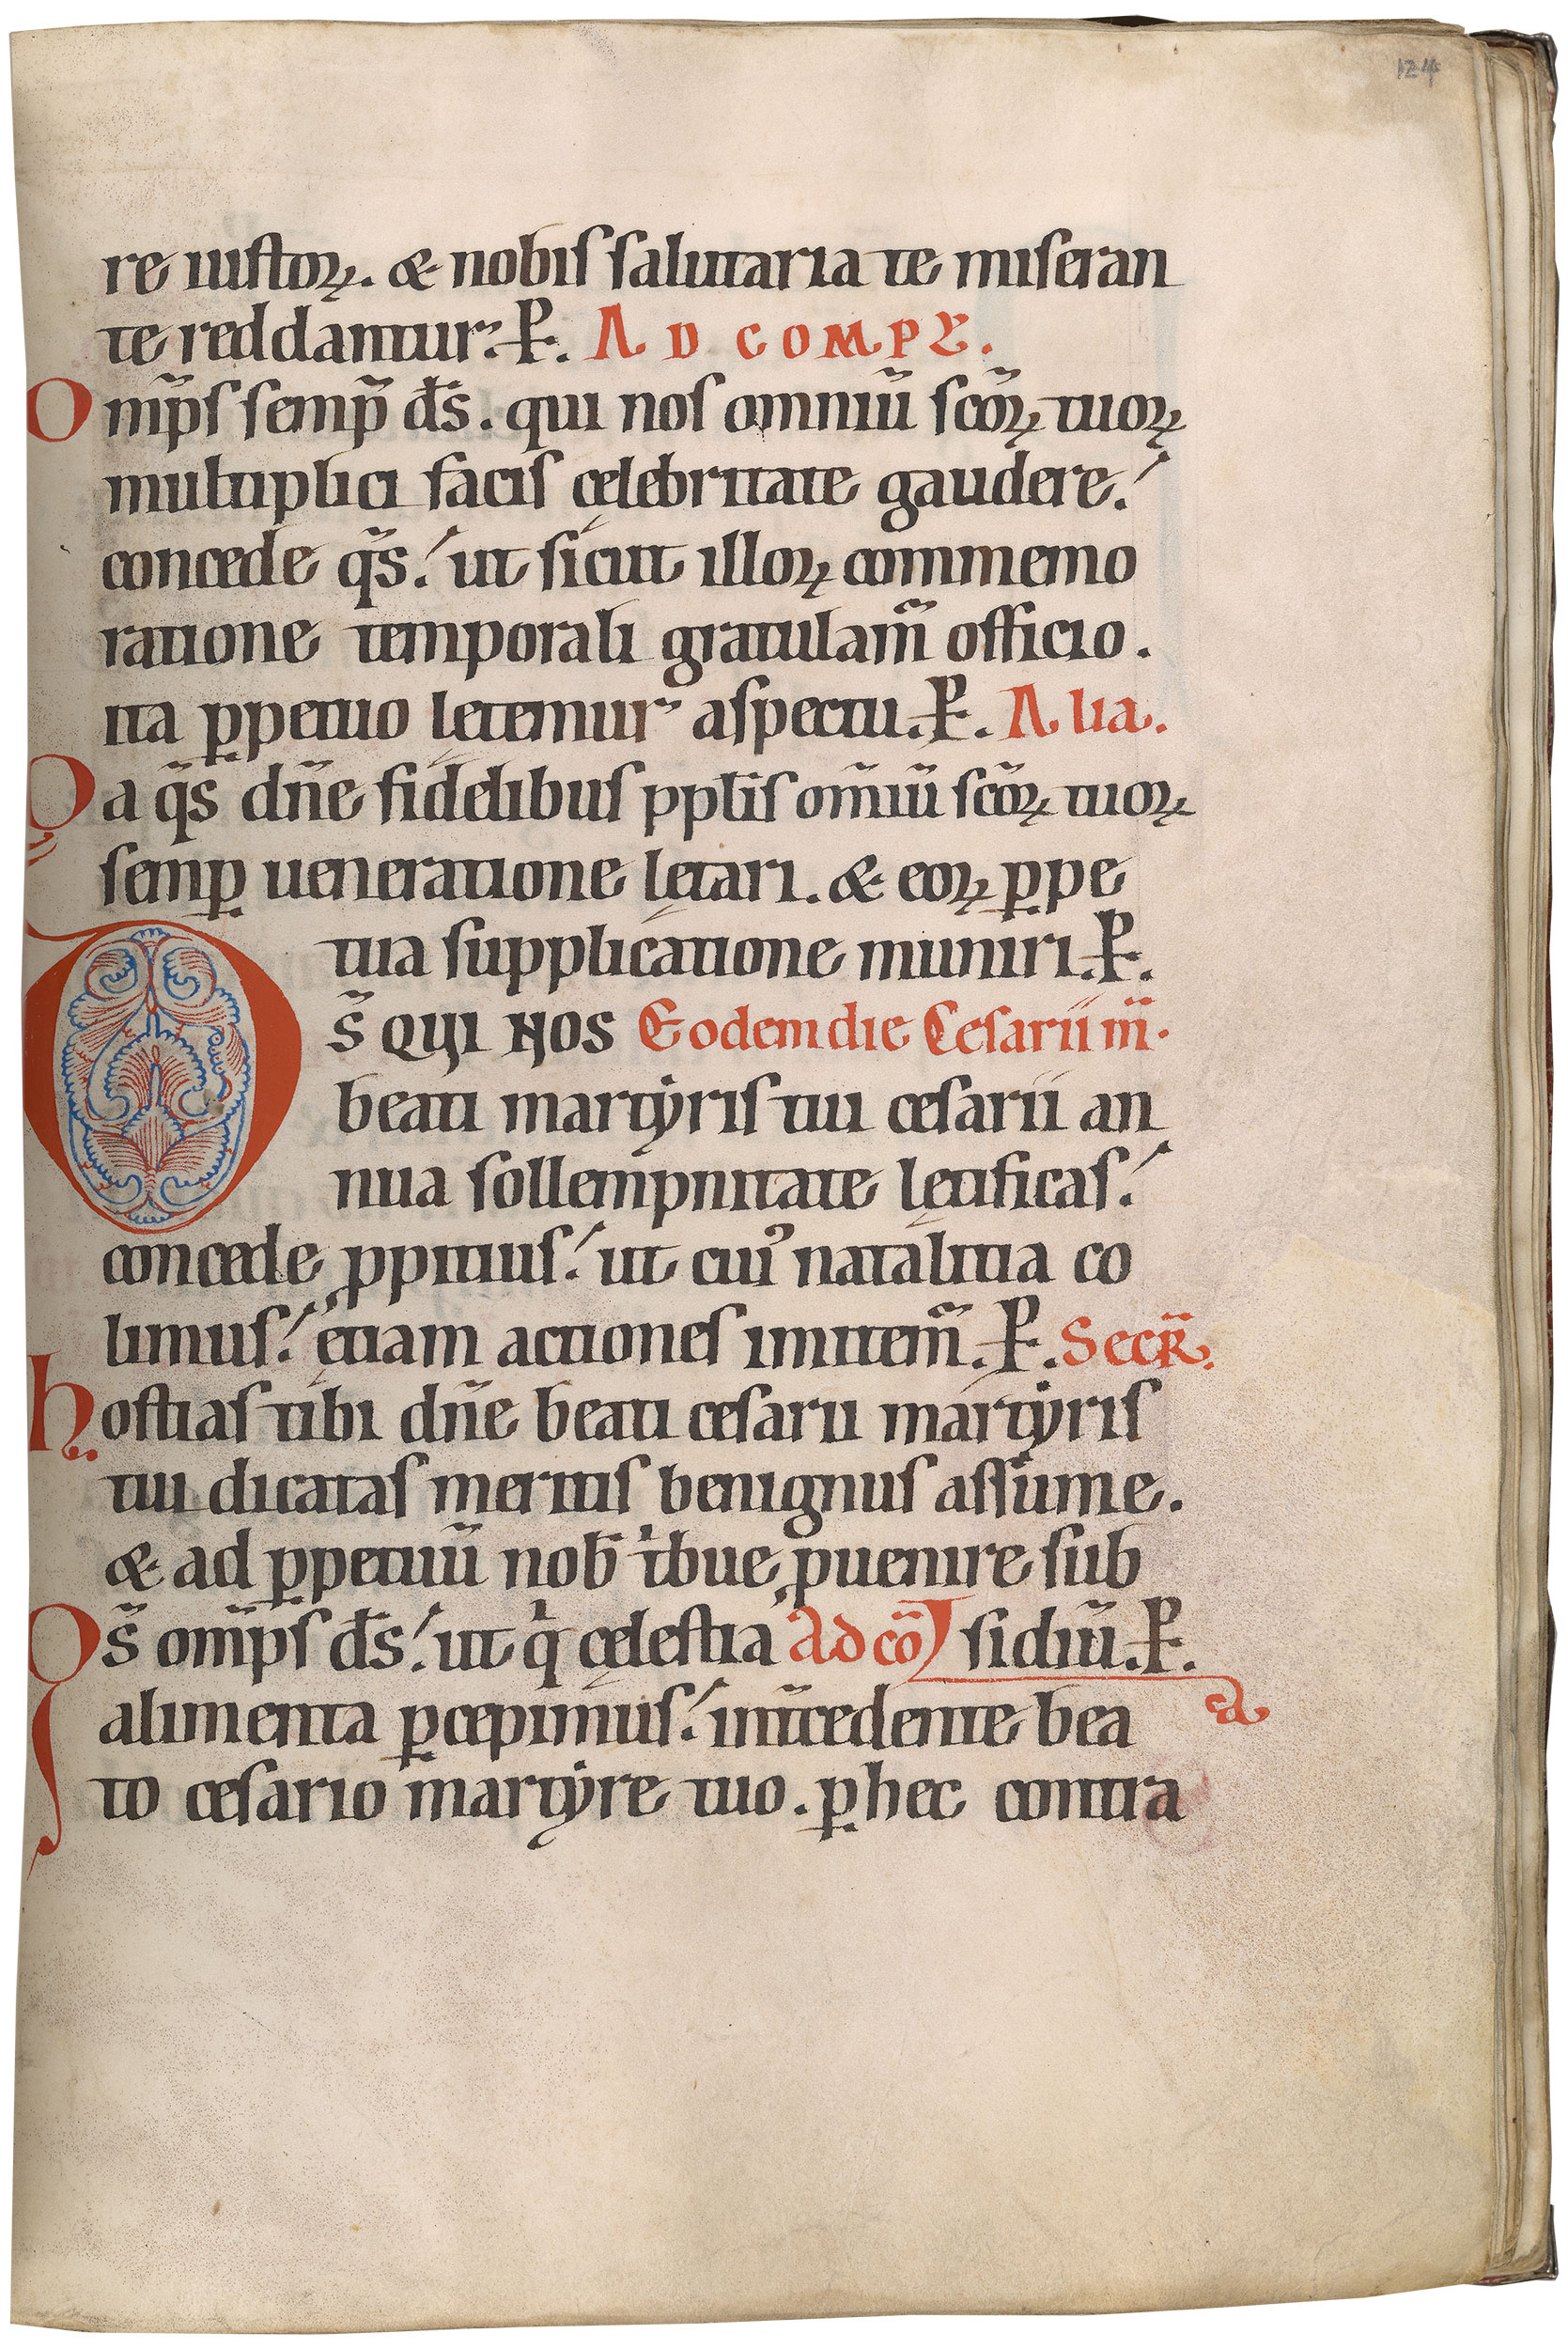 124
re iustoꝝ. & nobis salutaria te miseran
te reddantur. P̵. AD COMPL̃.
Om̅ps semp̃ d̅s. qui nos omniũ sc̃oꝝ tuoꝝ
multiplici facis cęlebritate gaudere.
concede q̃s. ut sicut illoꝝ commemo
ratione temporali gratulam̃ officio.
ita ꝑpetuo lętemur aspectu. P̵. Alia.
Da q̃s dñe fidelibus ppl̅is om̃iũ sc̃oꝝ tuoꝝ
semꝑ ueneratione lętari. & eoꝝ ꝑpe
tua supplicatione muniri. P̵.
Ds̃ QUI NOS Eodem die Cesarii m̃.
beati martẏris tui cesarii an
nua sollempnitate lętificas.
concede ꝓpitius. ut cuiꝰ natalitia co
limus. etiam actiones imitem̃. P̵. Secr̃.
hostias tibi dñe beati cesarii martẏris
tui dicatas meritis benignus assume.
& ad ꝑpetuũ nob̅ tͥbue ꝓuenire sub
Ds̃ om̅ps d̅s. ut qͥ cęlestia ad cõ sidiũ. P̵.
alimenta ꝑcepimus. int̃cedente bea
to cesario martẏre tuo. ꝑ hec contra